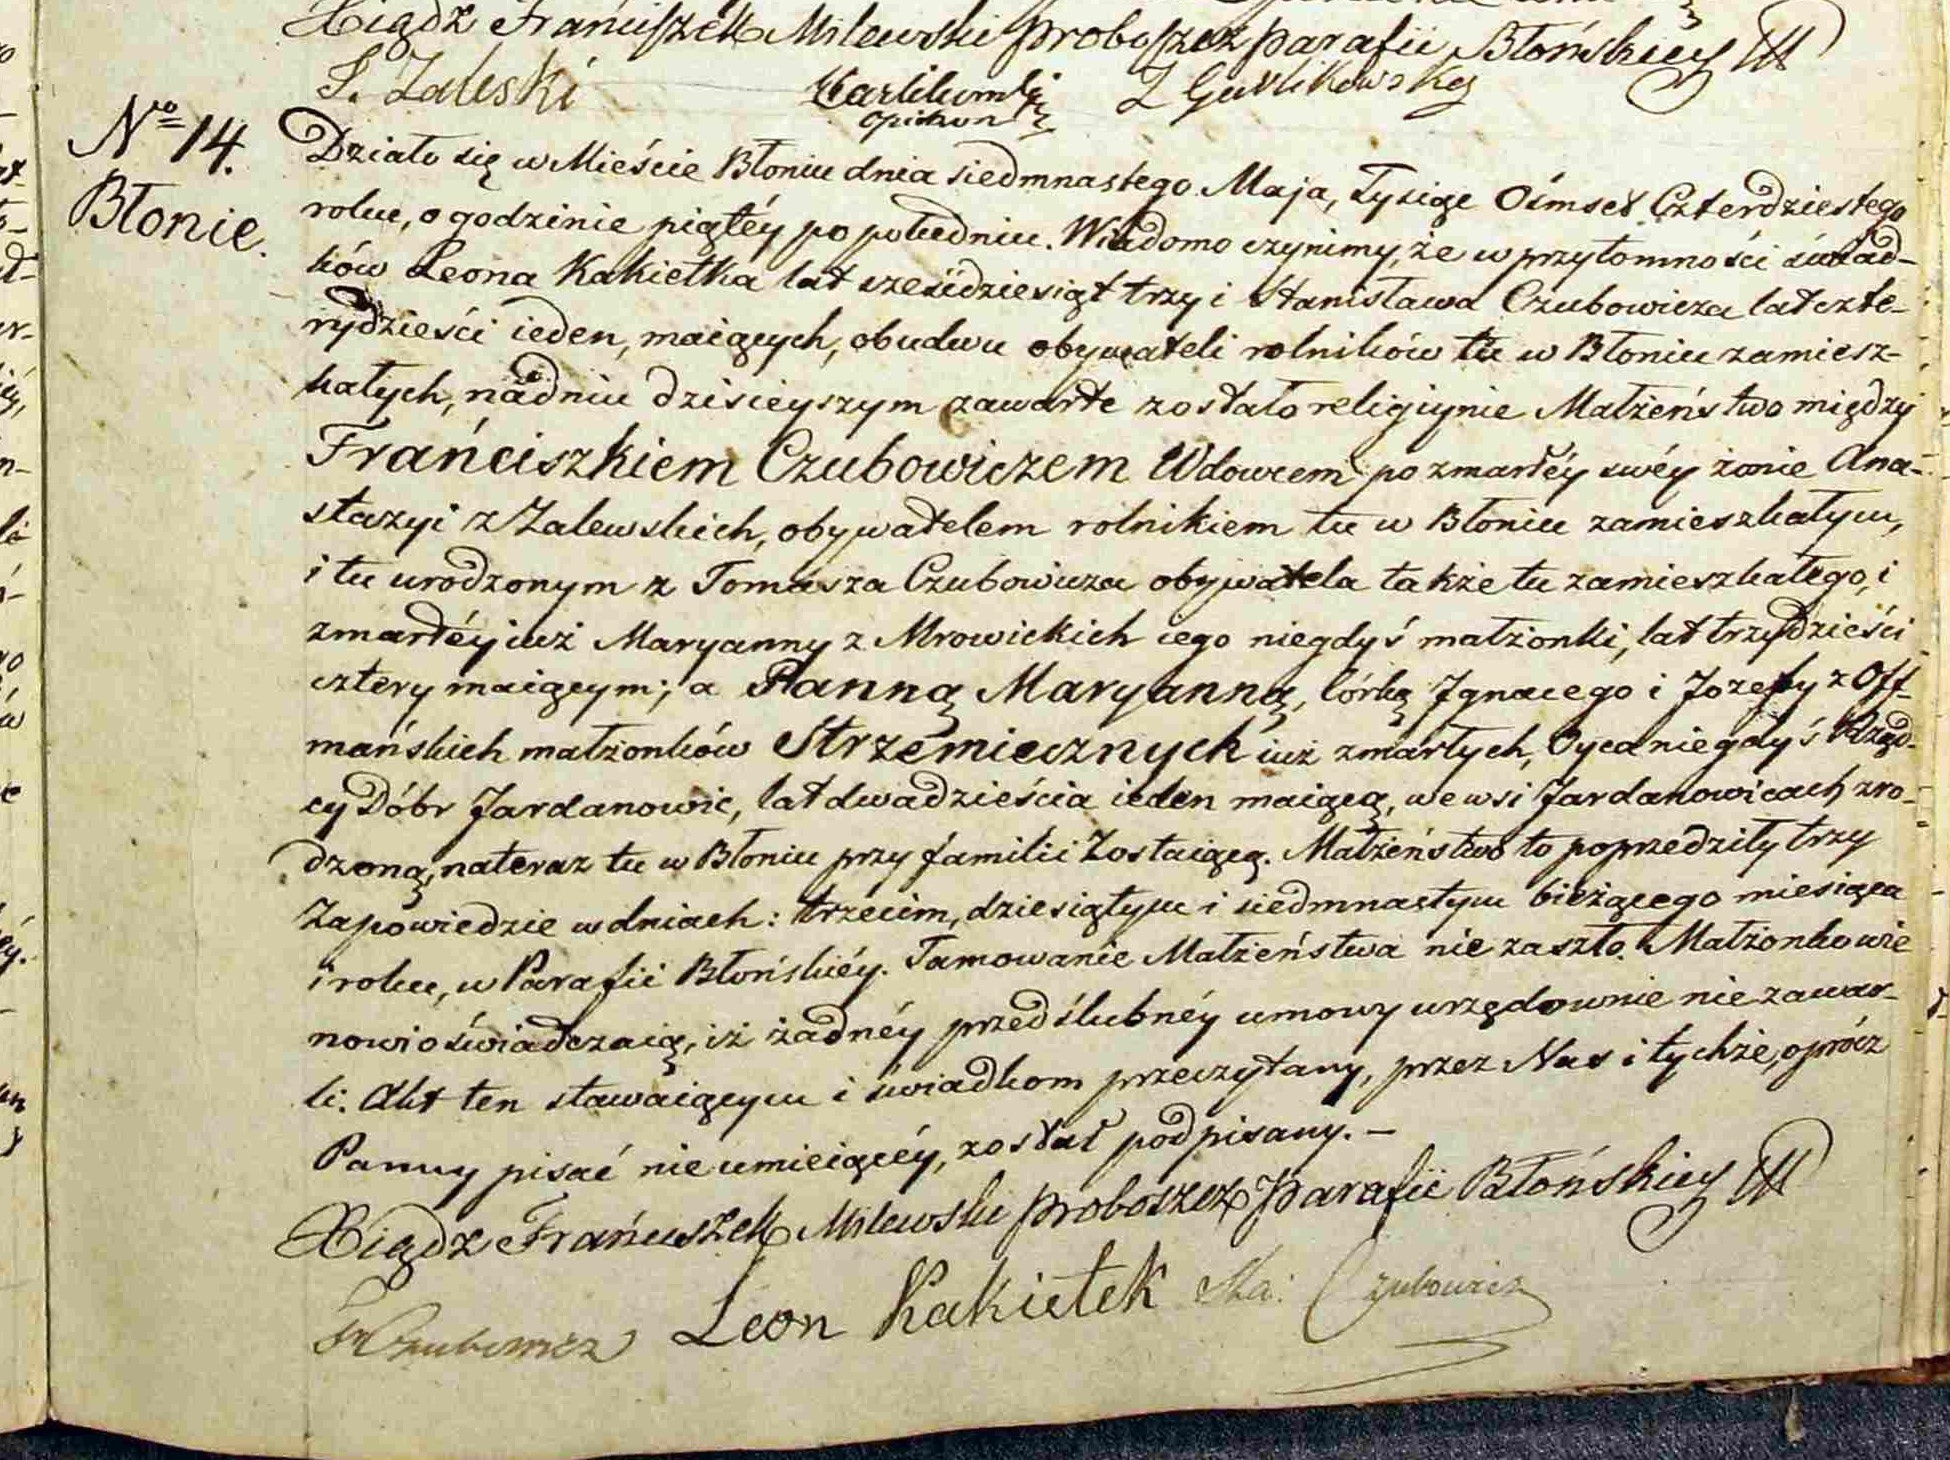 Xiądz Franciszek Milewski Proboszcz Parafii Błońskiey
S. Zaleski
opiekun
Nro 14.
Błonie.
Działo się w Mieście Błoniu dnia siedmnastego Maja, Tysiąc Ośmset Czterdziestego
roku, o godzinie piątéy po południu. Wiadomo czynimy, że w przytomności świad-
ków Leona Kakietka lat sześćdziesiąt trzy i Stanisława Czubowicza lat czte-
rydzieści ieden, maiących, obudwu obywateli rolników tu w Błoniu zamiesz-
kałych, na dniu dzisieyszym zawarte zostało religiynie Małżeństwo między
Franciszkiem Czubowiczem Wdowcem po zmarłéy swéy żonie Ana-
stazyi z Zalewskich, obywatelem rolnikiem tu w Błoniu zamieszkałym,
i tu urodzonym z Tomasza Czubowicza obywatela także tu zamieszkałego, i
zmarłéy iuż Maryanny z Mrowickich iego niegdyś małżonki, lat trzydzieści
cztery maiącym; a Panną Maryanną, córką Ignacego i Jozefy z Off-
mańskich małżonków Strzemiecznych iuż zmarłych, Oyca niegdyś Rząd-
cy Dóbr Jardanowic, lat dwadzieścia ieden maiącą, we wsi Jardanowicach zro-
dzoną, nateraz tu w Błoniu przy familii zostaiącą. Małżeństwo to poprzedziły trzy
Zapowiedzie w dniach: trzecim, dziesiątym i siedmnastym bieżącego miesiąca
i roku, w Parafii Błońskiéy. Tamowanie Małżeństwa nie zaszło. Małżonkowie
nowi oświadczaią, iż żadnéy przedślubnéy umowy urzędownie nie zawar-
li. Akt ten stawaiącym i świadkom przeczytany, przez Nas i tychże, oprócz
Panny pisać nie umieiącéy, został podpisany. –
Xiądz Franciszek Milewski Proboszcz Parafii Błońskiey
Fr Czubowicz Leon Kakietek Sta: Czubowicz